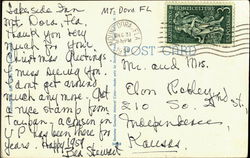 Lakeside Inn
Mt. Dora, Fla.
Thank you very
much for your
Christmas Greetings.
Miss seeing you
don't get around
much any more. Got
a nice stamp from
Taiwan, a cousin in
V.P. has been there for
years. Happy 1959
Stewart
MT. DORA FL
HORTICULTURE
3¢
POST CARD
Mr. and Mrs.
Elon Robley
210 So. St
Independence,
Kansas.